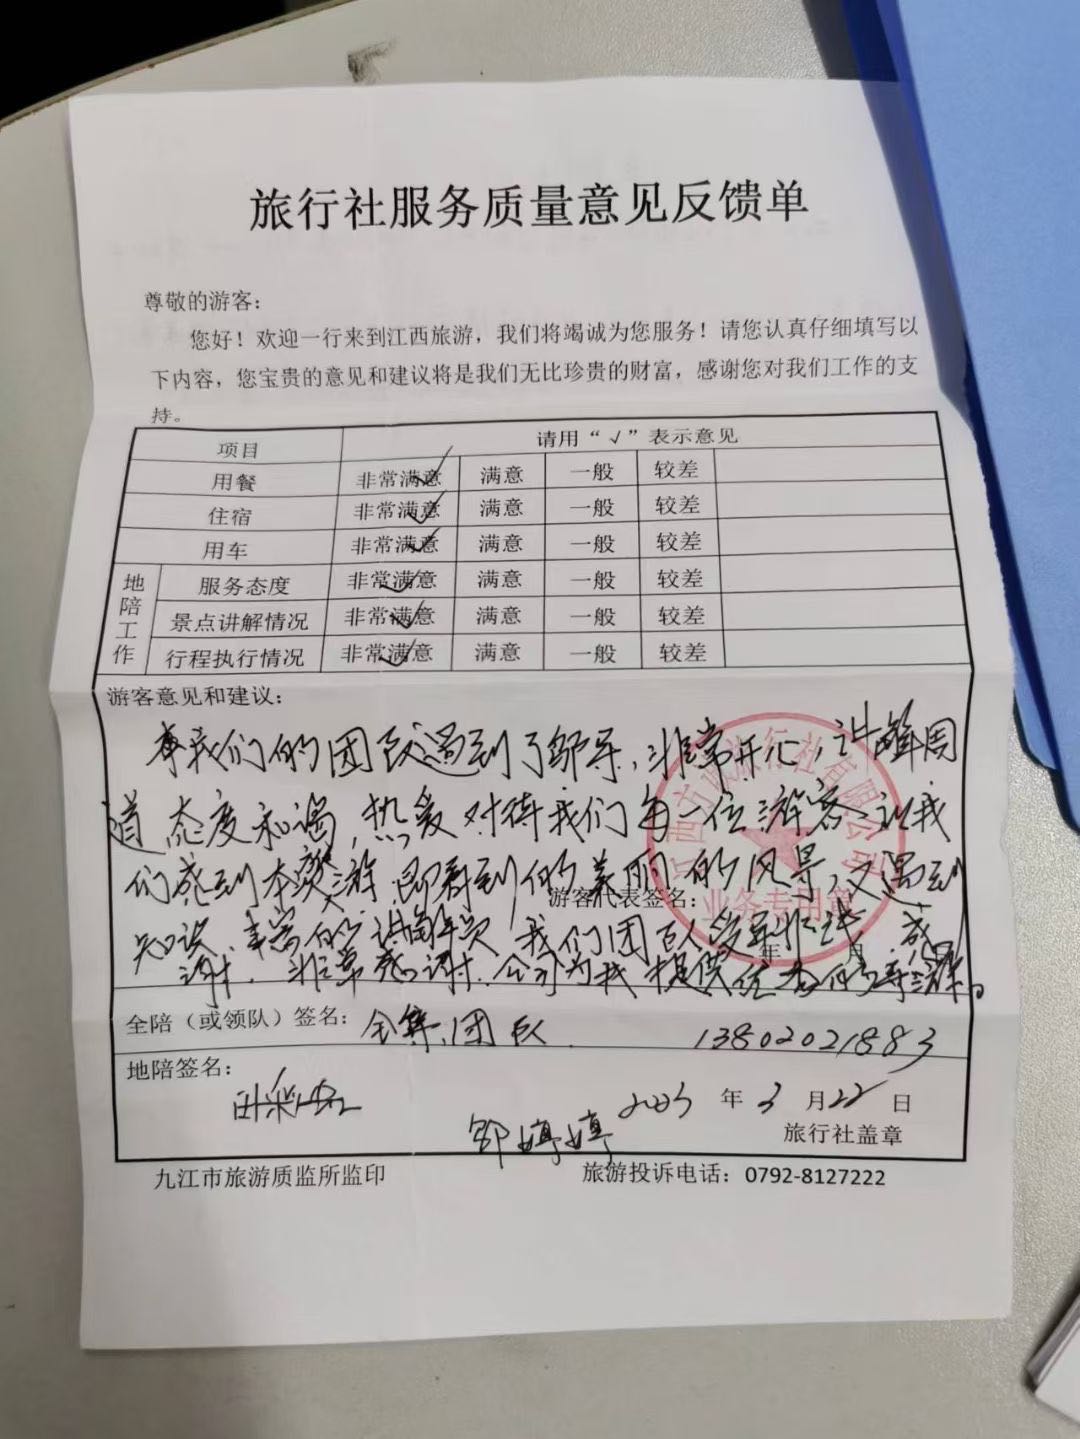 旅行社服务质量意见反馈单
尊敬的游客：
您好！欢迎一行来到江西旅游，我们将竭诚为您服务！请您认真仔细填写以
下内容，您宝贵的意见和建议将是我们无比珍贵的财富，感谢您对我们工作的支
持。
项目 请用“√”表示意见
用餐 非常满意 √ 满意 一般 较差
住宿 非常满意 √ 满意 一般 较差
用车 非常满意 √ 满意 一般 较差
地陪工作
服务态度 非常满意 √ 满意 一般 较差
景点讲解情况 非常满意 √ 满意 一般 较差
行程执行情况 非常满意 √ 满意 一般 较差
游客意见和建议：
我们的团队遇到了邹导，非常开心，讲解周
道，态度和谒，热爱对待我们每一位游客，让我
们感到本次游，即看到的美丽的风景，又遇到
知识丰富的讲解员，我们团队受益，感
谢，非常感谢，公司为我提供优秀的导游。
游客代表签名：
年 月
旅行社有限公司
业务专用章
全陪（或领队）签名： 全集团队 13802021883
地陪签名：
邹婷婷
年 3 月 22 日
旅行社盖章
九江市旅游质监所监印 旅游投诉电话：0792-8127222